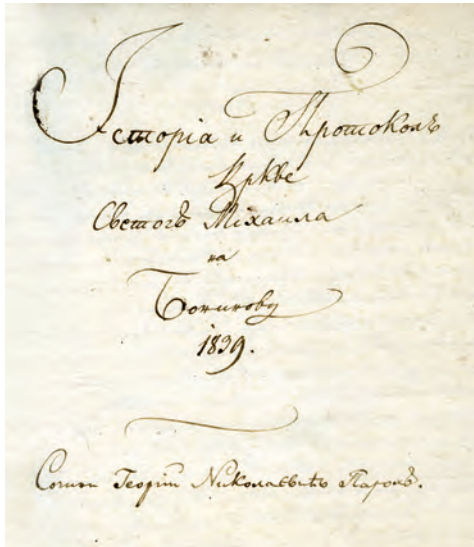 Історіа и Протоколъ
Цркве
Светогъ Міхаила
на
Бонинову
1839.
Георгій Николаевићъ Парохъ.